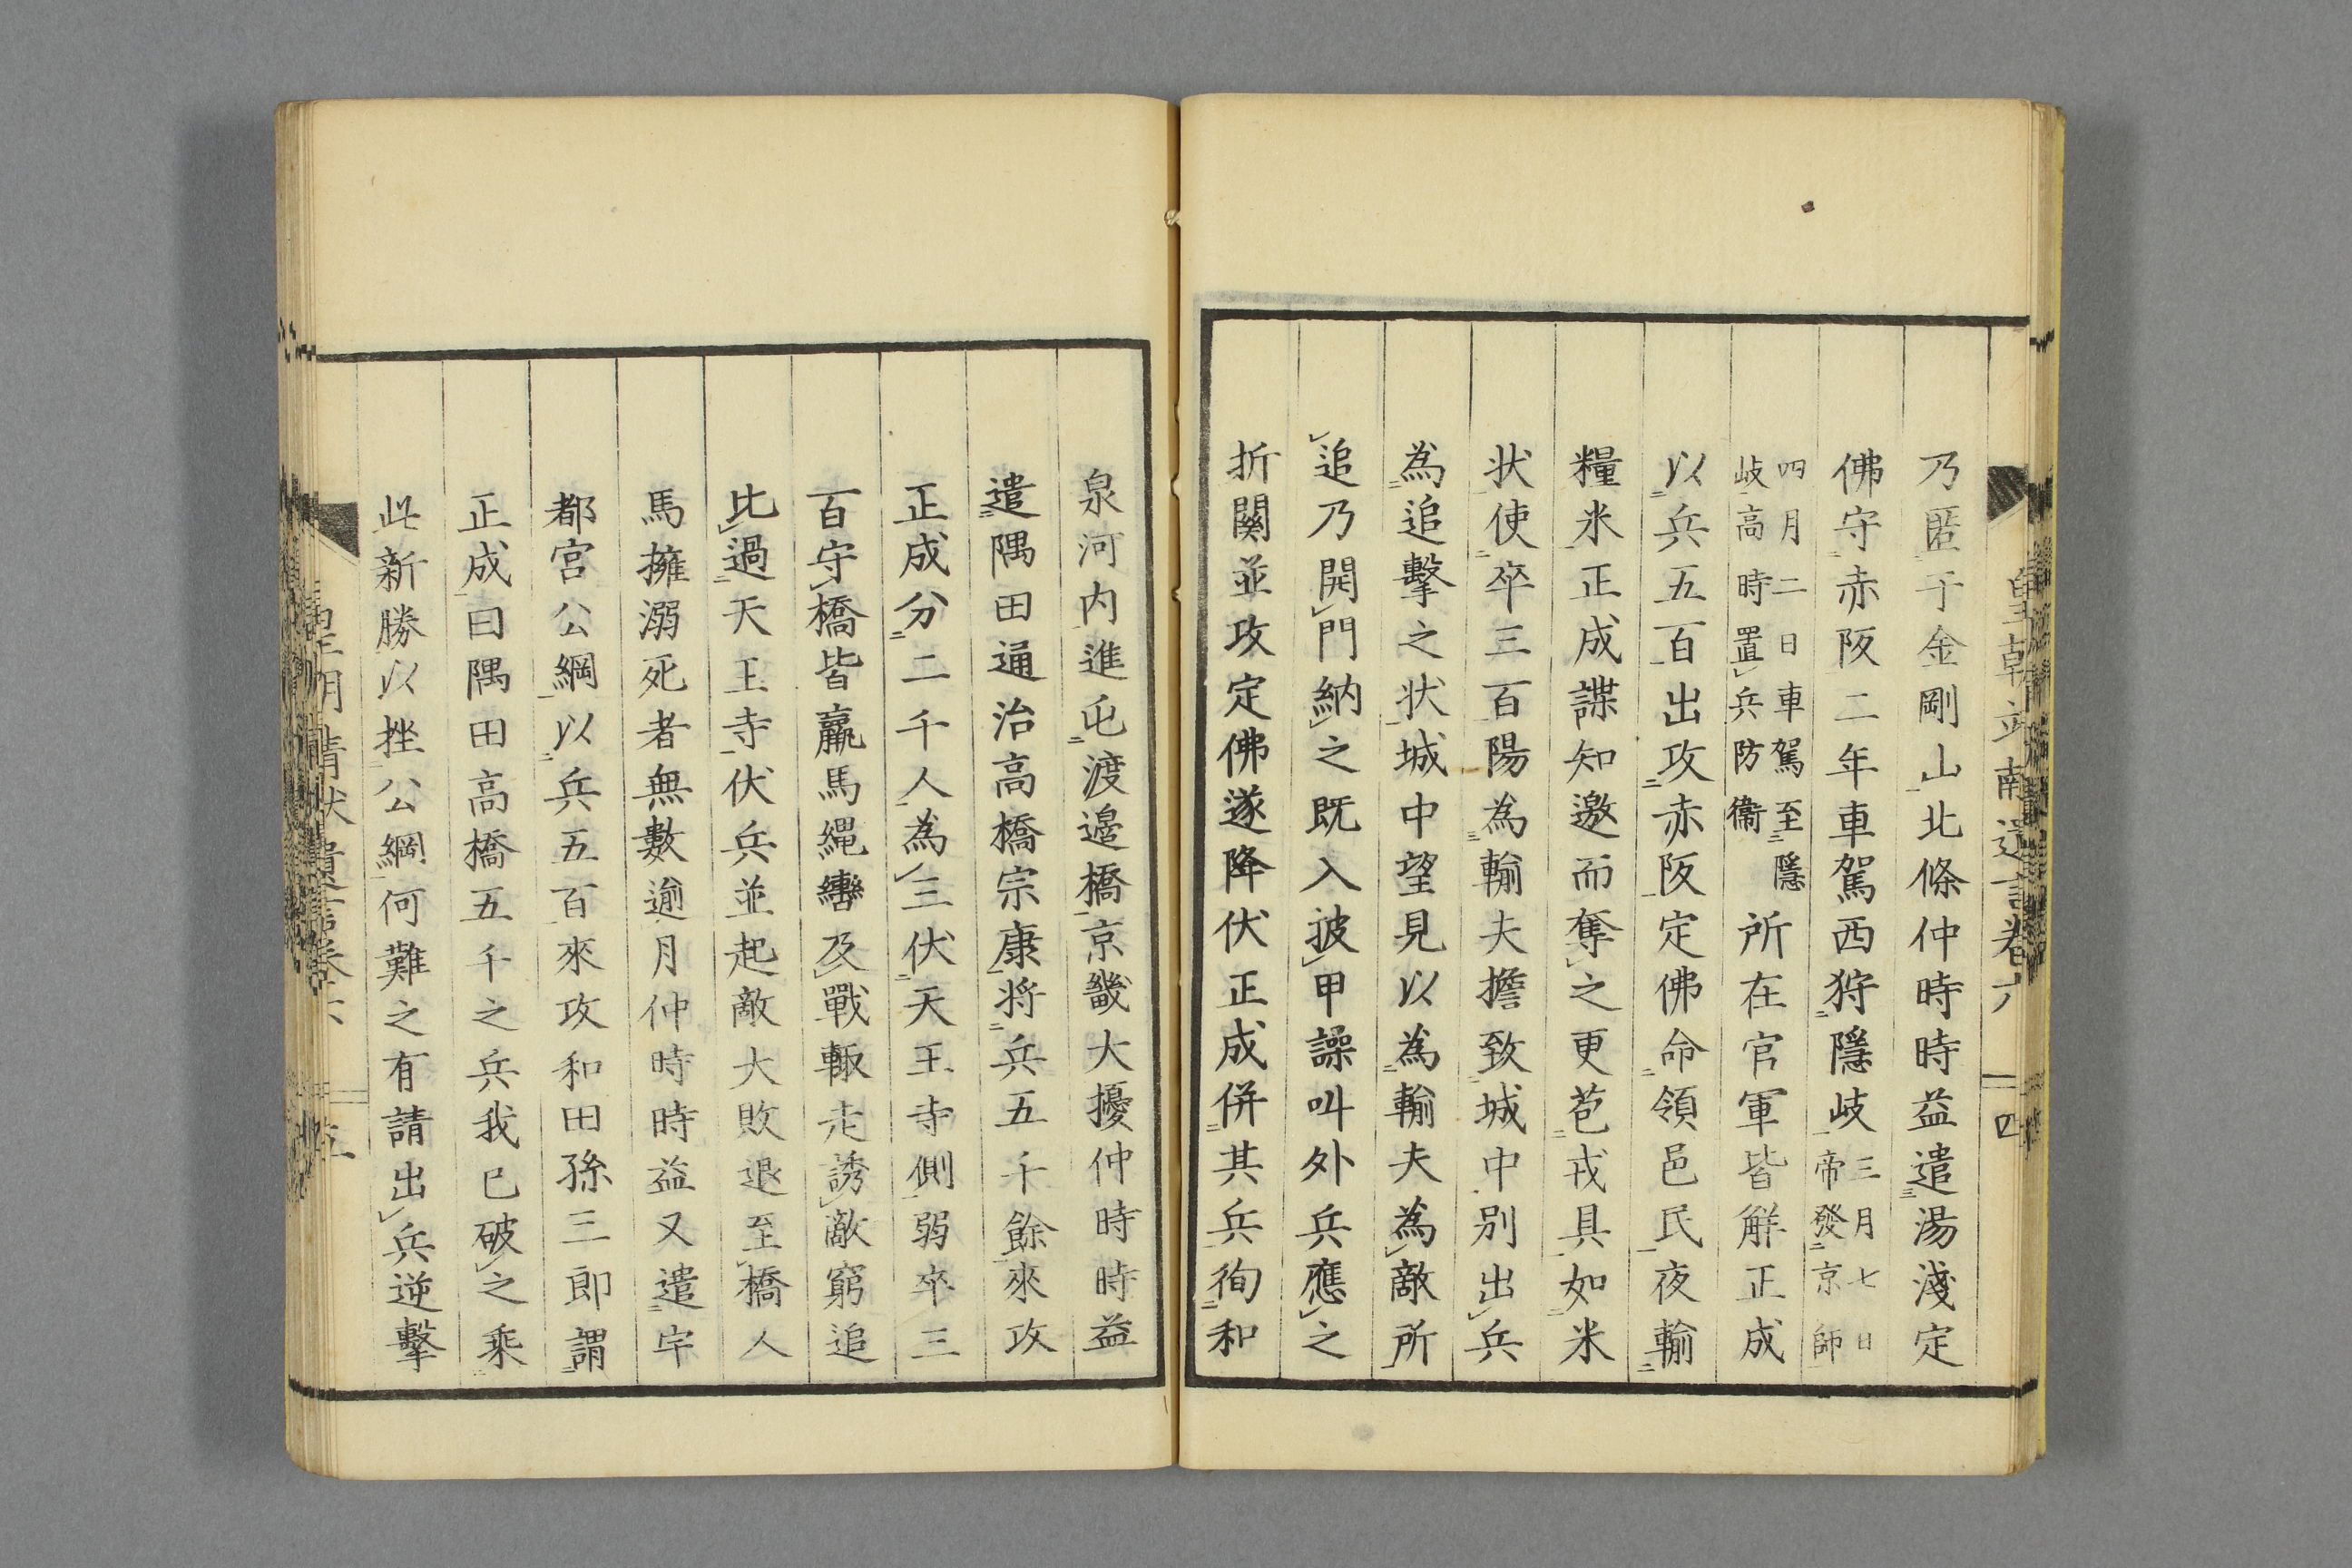 乃匿于金剛山北條仲時時益遣湯淺定
佛守赤阪二年車駕西狩隱岐三月七日帝發京師
四月二日車駕至隱岐高時置兵防衞所在官軍皆解正成
以兵五百出攻赤阪定佛命領邑民夜輸
糧米正成諜知邀而奪之更苞戎具如米
状使卒三百陽為輸夫擔致城中別出兵
為追擊之状城中望見以為輸夫為敵所
追乃開門納之既入披甲譟叫外兵應之
折關並攻定佛遂降伏正成併其兵徇和
泉河内進屯渡邊橋京畿大擾仲時時益
遣隅田通治高橋宗康将兵五千餘來攻
正成分二千人為三伏天王寺側弱卒三
百守橋皆羸馬繩轡及戰輙走誘敵窮追
比過天王寺伏兵並起敵大敗退至橋人
馬擁溺死者無數逾月仲時時益又遣宇
都宮公綱以兵五百來攻和田孫三郎謂
正成曰隅田高橋五千之兵我已破之乘
此新勝以挫公綱何難之有請出兵逆擊